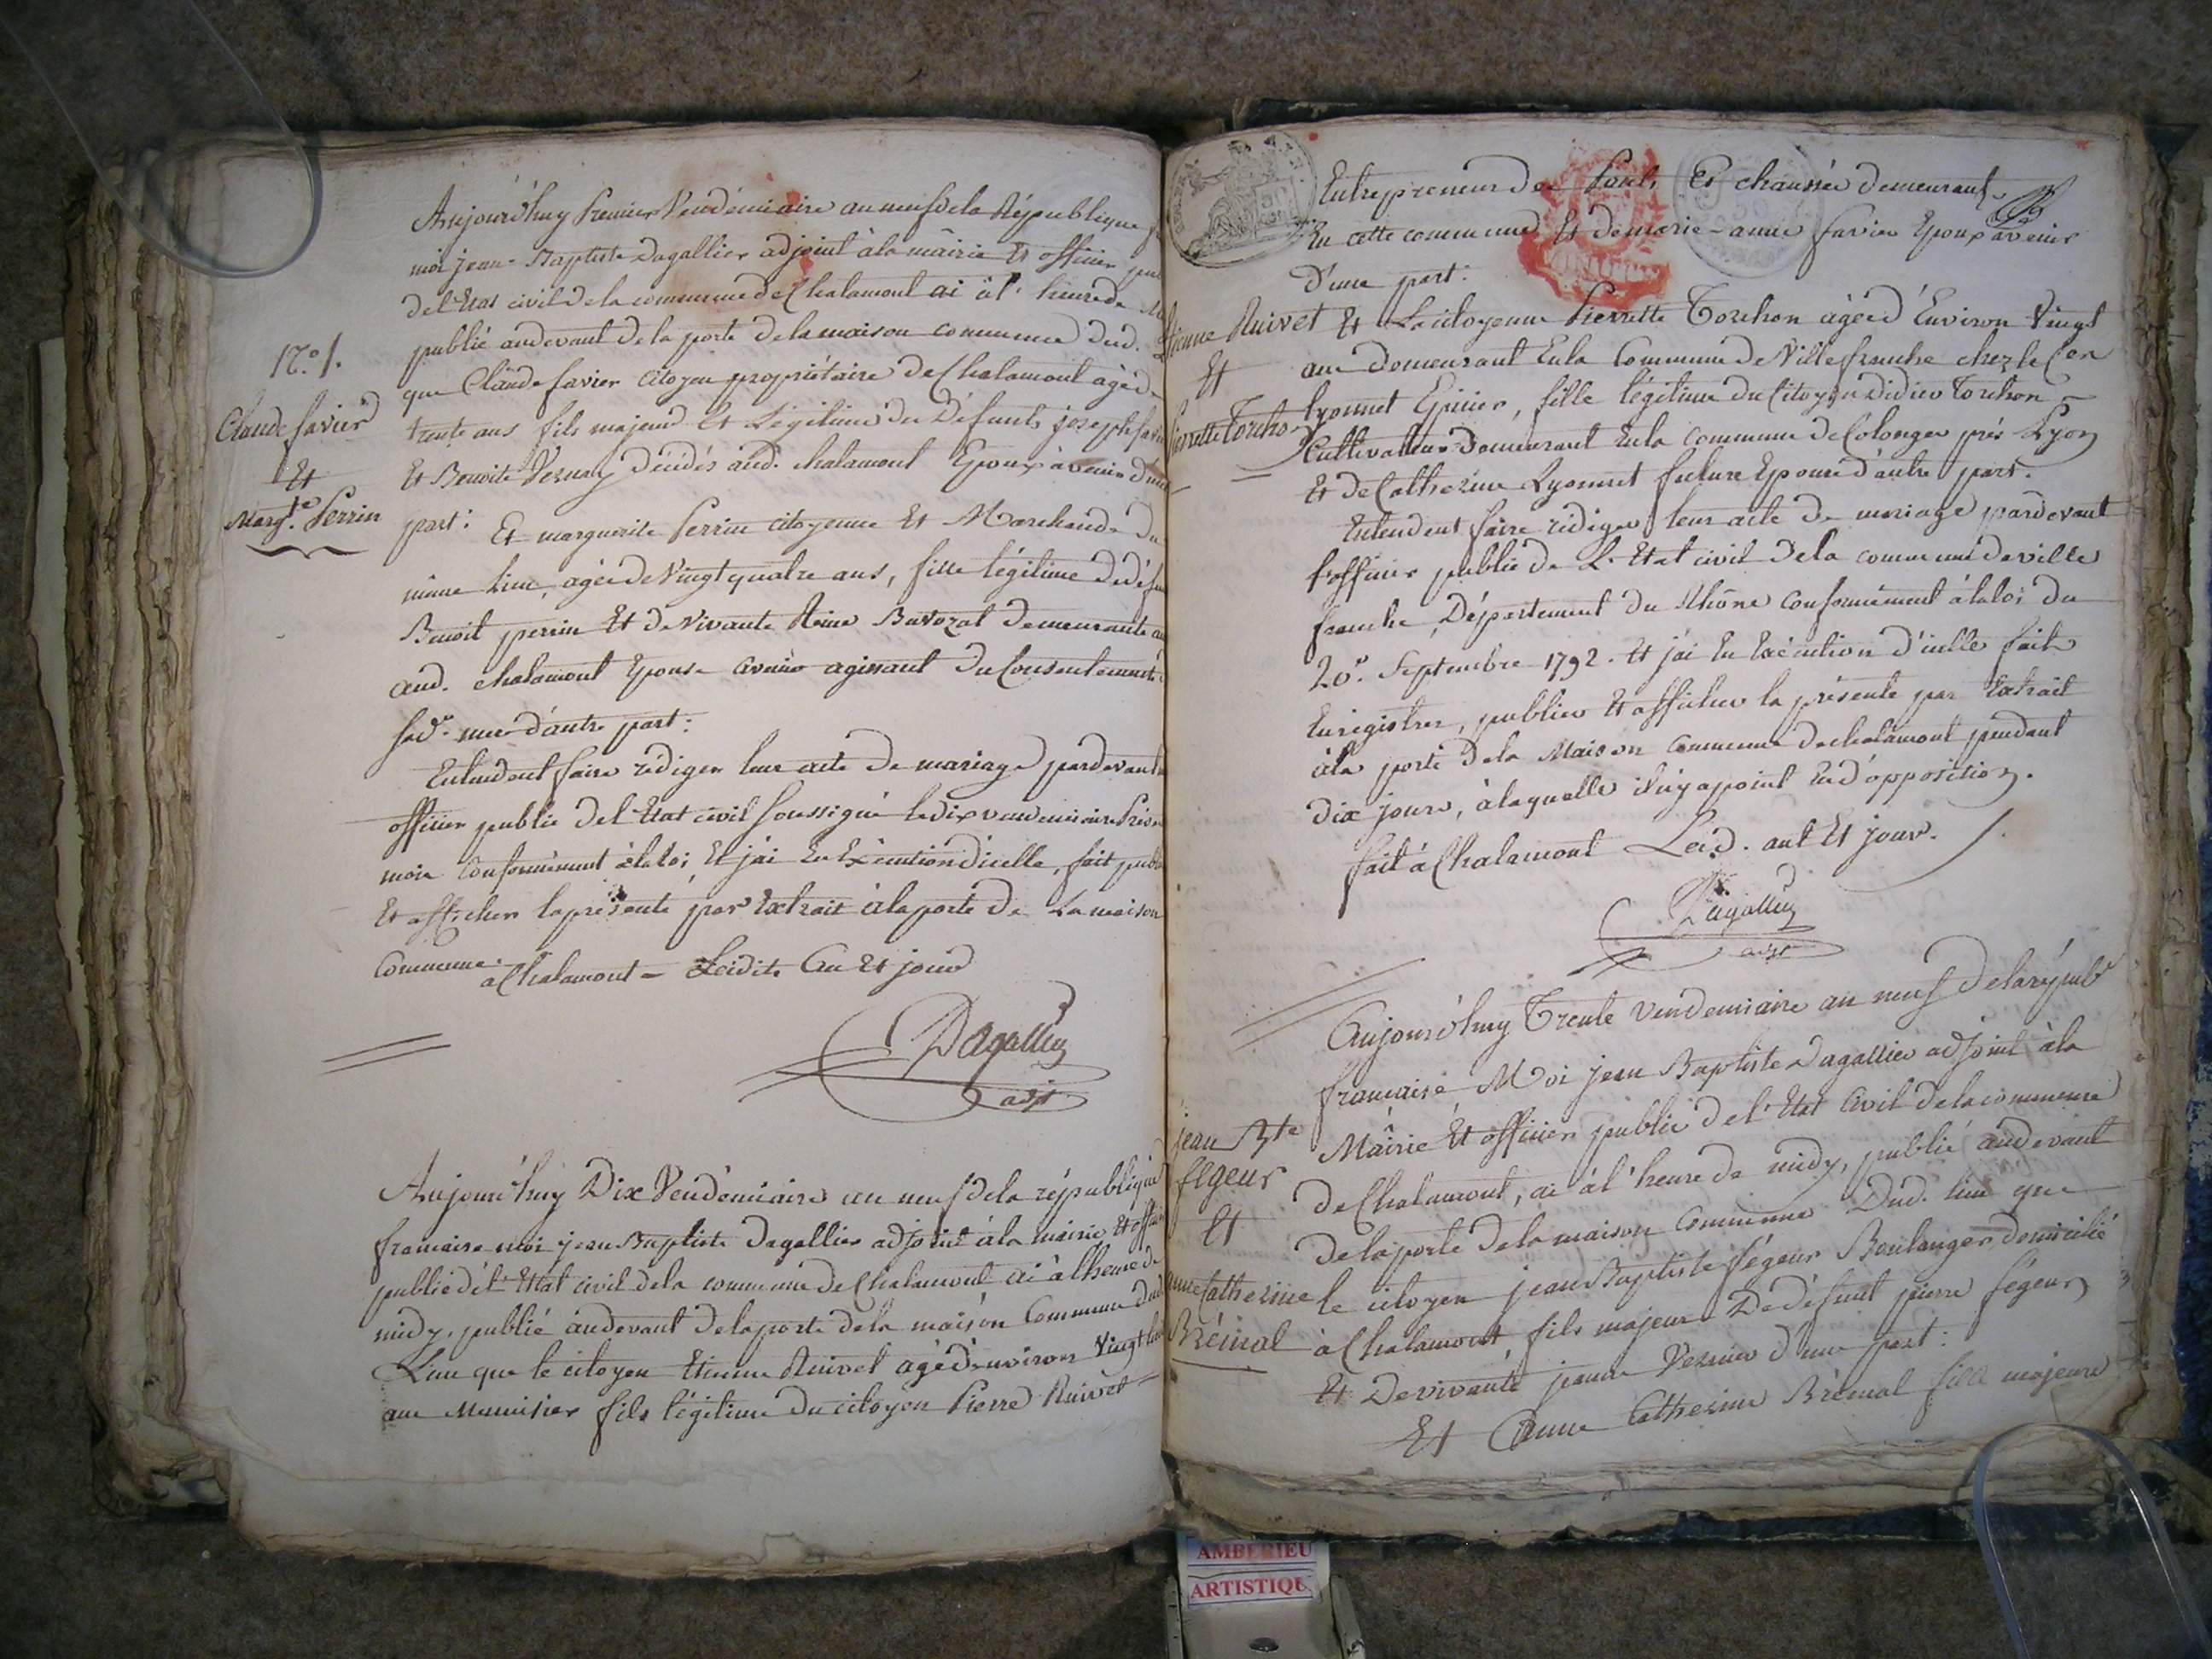 Aujourd'huy Premier Vendémiaire an neuf dela République
moi jean-Baptiste Dagallier adjoint àla mairie Et officier
del'Etat civil dela commune de Chalamont ai à l'heure de
publié audevant de la porte dela maison commune dud.
N.° 1.
que Claude favier Citoyen propriétaire de Chalamont agé de
Claude favier
trente ans fils majeur Et Légitime de Défunts joseph
Et
Et Benoite Vernay décédés aud. chalamont Epoux àvenir d'une
Marg.te Perrin
part:
Et marguerite Perrin citoyenne Et Marchande du
même lieu, agée de Vingt quatre ans, fille légitime de
Benoit perrin Et de Vivante Reine Buvozat demeurante
aud. chalamont Epouse avenir agissant du Consentement
sad.e mere d'autre part:
Entendent faire rédiger leur acte De mariage pardevant
officier public del'Etat civil soussigné le dix vendemiaire
mois Conformément àla loi, Et j'ai En Exécution dicelle, fait
Et afficher la présente par Extrait àla porte De La maison
Commune.
a Chalamont - Lesdits an Et jour
Dagallier
adjt
Aujourd'huy Dix Vendémiaire an neuf dela république
francaise moi jean Baptiste Dagallier adjoint àla mairie Et
public dél'Etat civil dela commune de Chalamont ai à l'heure de
midy, publié audevant dela porte dela maison Commune
Lieu que le citoyen Etienne Ruivet agé d'environ Vingt
ans Menuisier fils légitime du citoyen Pierre Ruivet
Entrepreneur des Ponts Et chaussée demeurant
En cette commune Et de marie-anne favier Epoux avenir
D'une part:
Etienne Ruivet
Et La citoyenne Pierrette Torchon agée d'Environ Vingt
Et
ans demeurant En la Commune de Villefranche chez le Cen
Pierrette Torchon
Lyonnet Epicier, fille légitime du Citoyen Didier Torchon
Cultivateur Demeurant En la commune de Colonges près Lyon
Et de Catherine Lyonnet future Epouse d'autre part.
Entendent faire rédiger leur acte de mariage pardevant
l'officier public de L'Etat civil dela commune de ville
franche, Département du Rhône conformément àla loi du
20.e Septembre 1792. Et j'ai En Exécution d'icelle fait
Enregistrer, publier Et afficher la présente par Extrait
àla porte dela Maison commune de chalamont pendant
dix jours, àlaquelle il n'y a point Eu d'opposition.
fait à Chalamont Lesd. ant Et jour.
Dagallier
adjt
Aujourd'huy Trente Vendemiaire an neuf dela répub
francaise, Moi jean Baptiste Dagallier adjoint àla
jean Bte
Mairie Et officier public de l'Etat Civil dela commune
flgeur
de Chalamont, ai àl'heure de midy, publié audevant
Et
dela porte dela maison Commune Dud. lieu que
anne Catherine
le citoyen jean Baptiste fégeur Boulanger, domicilié
Brémal
à Chalamont, fils majeur De défunt pierre fégeur
Et De vivante jeanne Vernier d'une part:
Et Anne Catherine Brémal fille majeure
AMBERIEU
ARTISTIQU